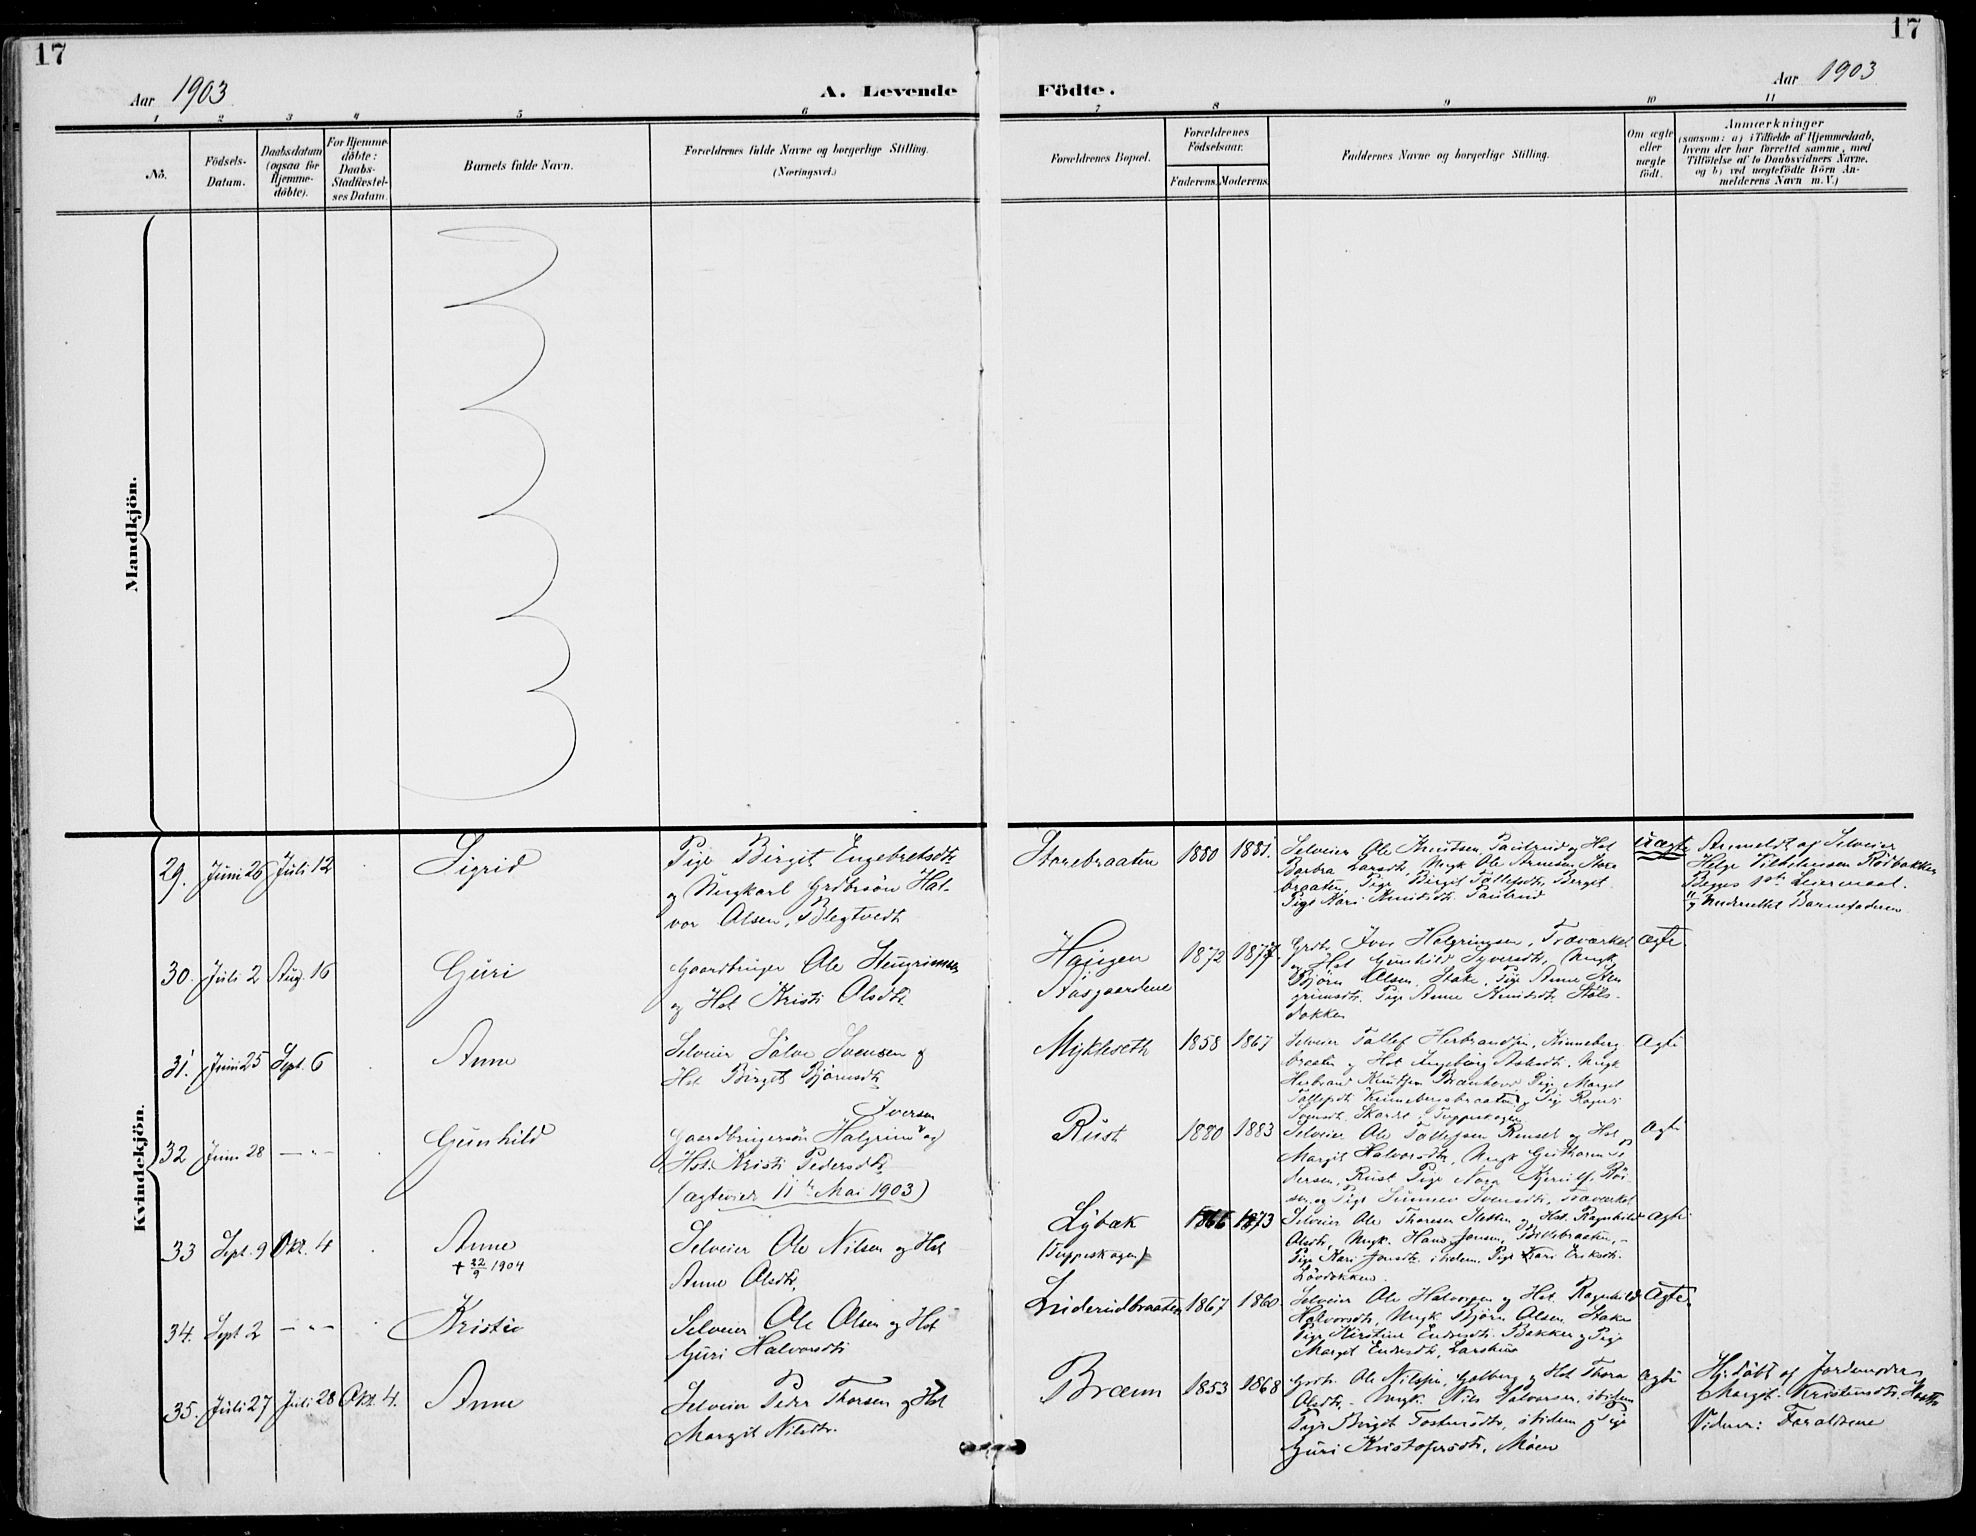 17
17
Aar 1903
A. Levende
Födte.
Aar 1903
1 2 3 4 5 6 7 8 9 10 11
No.
Födsels-
Datum.
Daabsdatum
(ogsaa for
Hjemme-
döbte).
For Hjemme-
döbte:
Daabs-
Stadfæstel-
ses Datum.
Barnets fulde Navn.
Forældrenes fulde Navne og borgerlige Stilling.
(Næringsvei.)
Forældrenes Bopæl.
Forældrenes
Födselsaar.
Faderens.
Moderens.
Faddernes Navne og borgerlige Stilling.
Om ægte
eller
uægte
födt.
Anmærkninger
(saasom: a) i Tilfælde af Hjemmedaab,
hvem der har forrettet samme, med
Tilföielse af to Daabsvidners Navne,
og b) ved uægtefödte Börn An-
melderens Navn m. V.)
Mandkjön.
Kvindekjön.
29. Juni 26 Juli 12
Sigrid
Pige Birgit Engebretsdtr
og Ungkarl Grdbrsøn Hal-
vor Olsen,
Storebraaten
1880 1881.
Selveier Ole Knutsen, Paulrud og Hst
Barbra Larsdtr, Ungk Ole Arnesen Store
braaten, Pige Birgit Tollefsdtr, Berget
Pige Kari Knutsdtr. Paulrud
Uægte
Anmeldt af Selveier
Helge Vilhelmsen Rødbakken
Begges 1ste Leiermaal.
30. Juli 2 Aug. 16
Guri
Gaardbruger Ole Stengrimsen
og Hst Kristi Olsdtr.
Haugen
Aasgaardene
1872 1877
Grdbr. Iver Halgrimsen, Traaværket
og Hst Gunhild Syversdtr, Ungk
Bjørn Olsen, Stake, Pige Anne Sten
grimsdtr. Pige Anne Knutsdtr. Støls-
dokken
Ægte
31. Juni 25 Sept. 6
Anne
Selveier Sølve Svensen og
Hst. Birget Bjørnsdtr
Mykleseth
1858 1867
Selveier Tollef Herbrandsen, Kinneberg
braaten og Hst Ingeborg Aslesdtr. Ungk
Herbrand Knutsen Pige Marget
Tollefsdtr Kinnebergbraaten og Pige Ragni
Svensdtr. Tuppeskogen
Ægte
32 Juni 28 — „ —
Gunhild
Iversen
Gaardbrugersøn Halgrim og
Hst. Kristi Pedersdtr
(ægteviet 11te Mai 1903)
Rust
1880 1883
Selveier Ole Tollefsen og Hst
Margit Halvorsdtr, Ungk Guttorm Pe
dersen, Rust Pige
og Pige Sunnev Svensdtr, Traaværket
Ægte
33 Sept. 9 Okt. 4
Anne
+ 22/9 1904
Selveier Ole Nilsen og Hst
Anne Olsdtr.
Lybæk
(Tuppeskogen)
1866 1873
Selveier Ole Thoresen Sletten og Hst. Ragnhild
Olsdtr, Ungk. Hans Jonsen, -
Pige Kari Jonsdtr. ibidem. Pige Kari Eriksdtr.
Løvdokken.
Ægte
34. Sept 2 — „ —
Kristi
Selveier Ole Olsen og Hst
Guri Halvorsdtr
Luderudbraaten
1867 1860.
Selveier Ole Halvorsen og Hst Ragnhild
Halvorsdtr, Ungk Bjørn Olsen, Stake
Pige Kirstine Endresdtr. Bakken og Pige
Marget Endresdtr,
Ægte
35. Juli 27 Juli 28 Okt. 4.
Anne
Selveier Peder Thorsen og Hst
Margit Nilsdtr.
Bræum
1853 1868
Grdbr. Ole Nilsen, Golberg og Hst Thora
Olsdtr, - Ungk. Nils Halvorsen, ibidem
Pige Birgit Tostensdtr, ibidem og Pige
Guri Kristofersdtr, Moen
Ægte
Hj. døbt af Jordmoder
Margit Kristensdtr.
Vidner: Forældrene